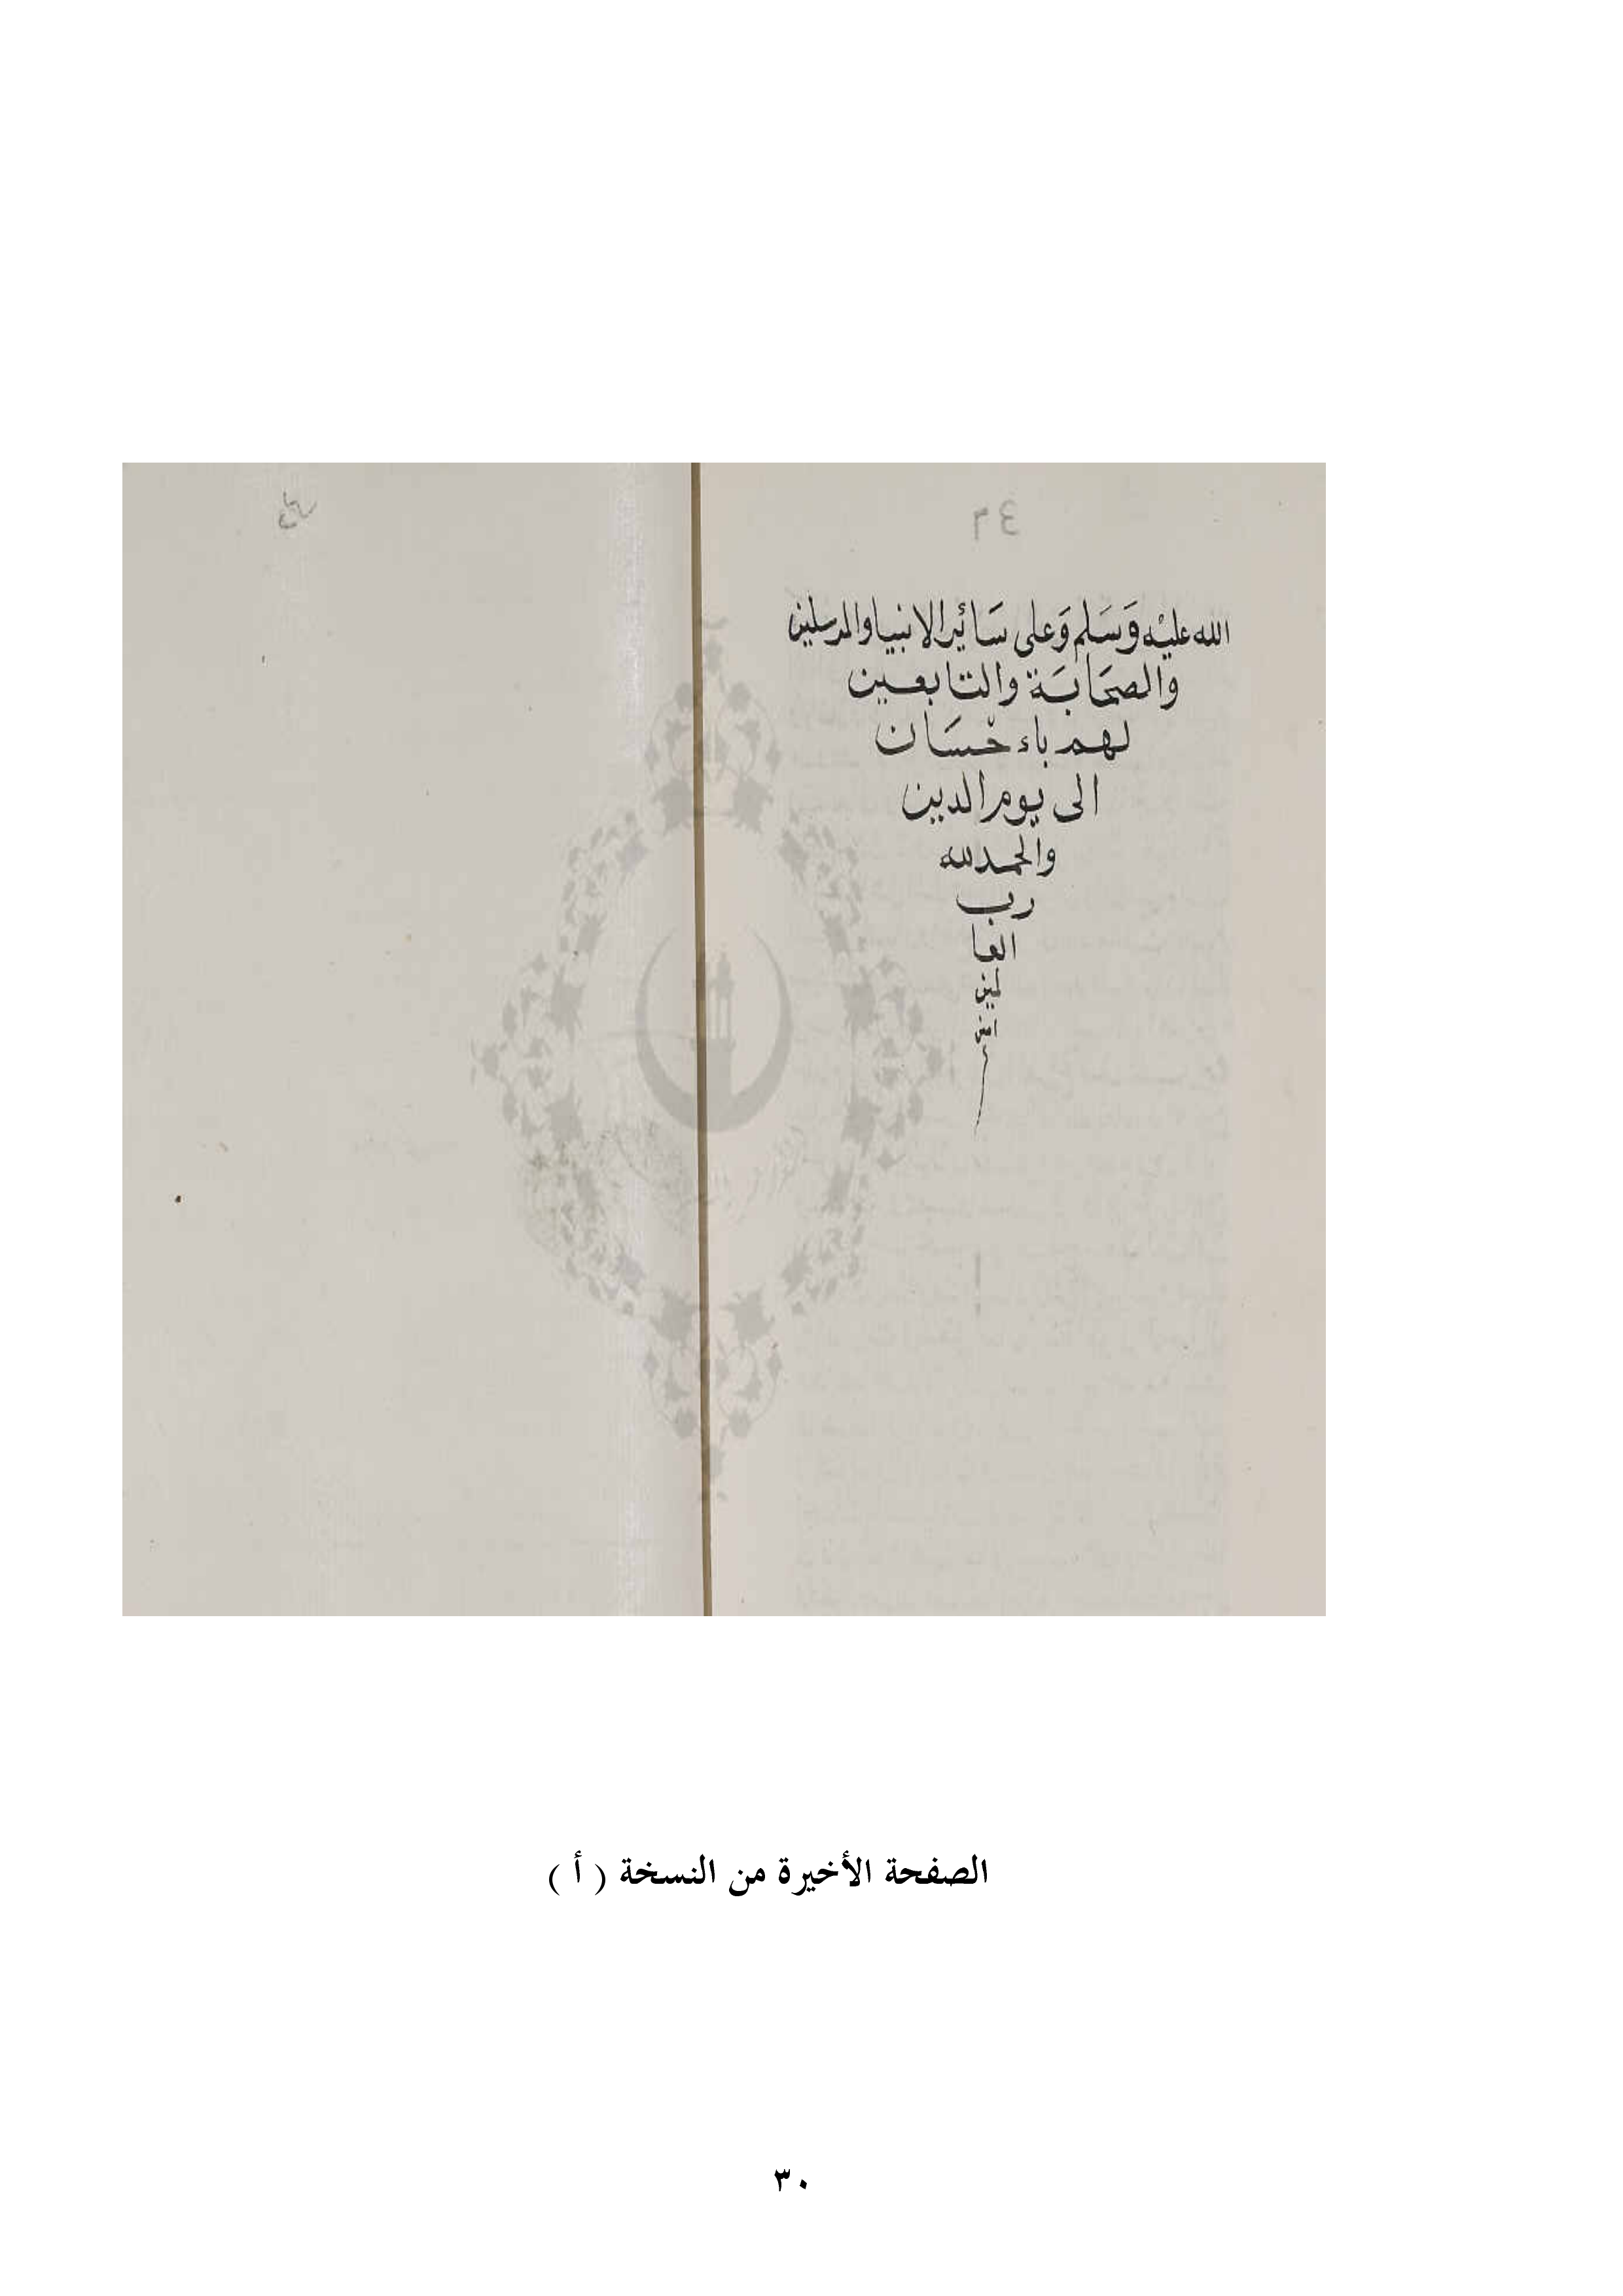 الله عليْه وَسَلم وَعلى سَائير الانبيا والمرسلين
والصحَابَة والتابعين
لهم باءحْسَان
الى يوم الدين
والحمد لله
رب
العا
لمين
امين
الصفحة الأخيرة من النسخة ( أ )
٣٠